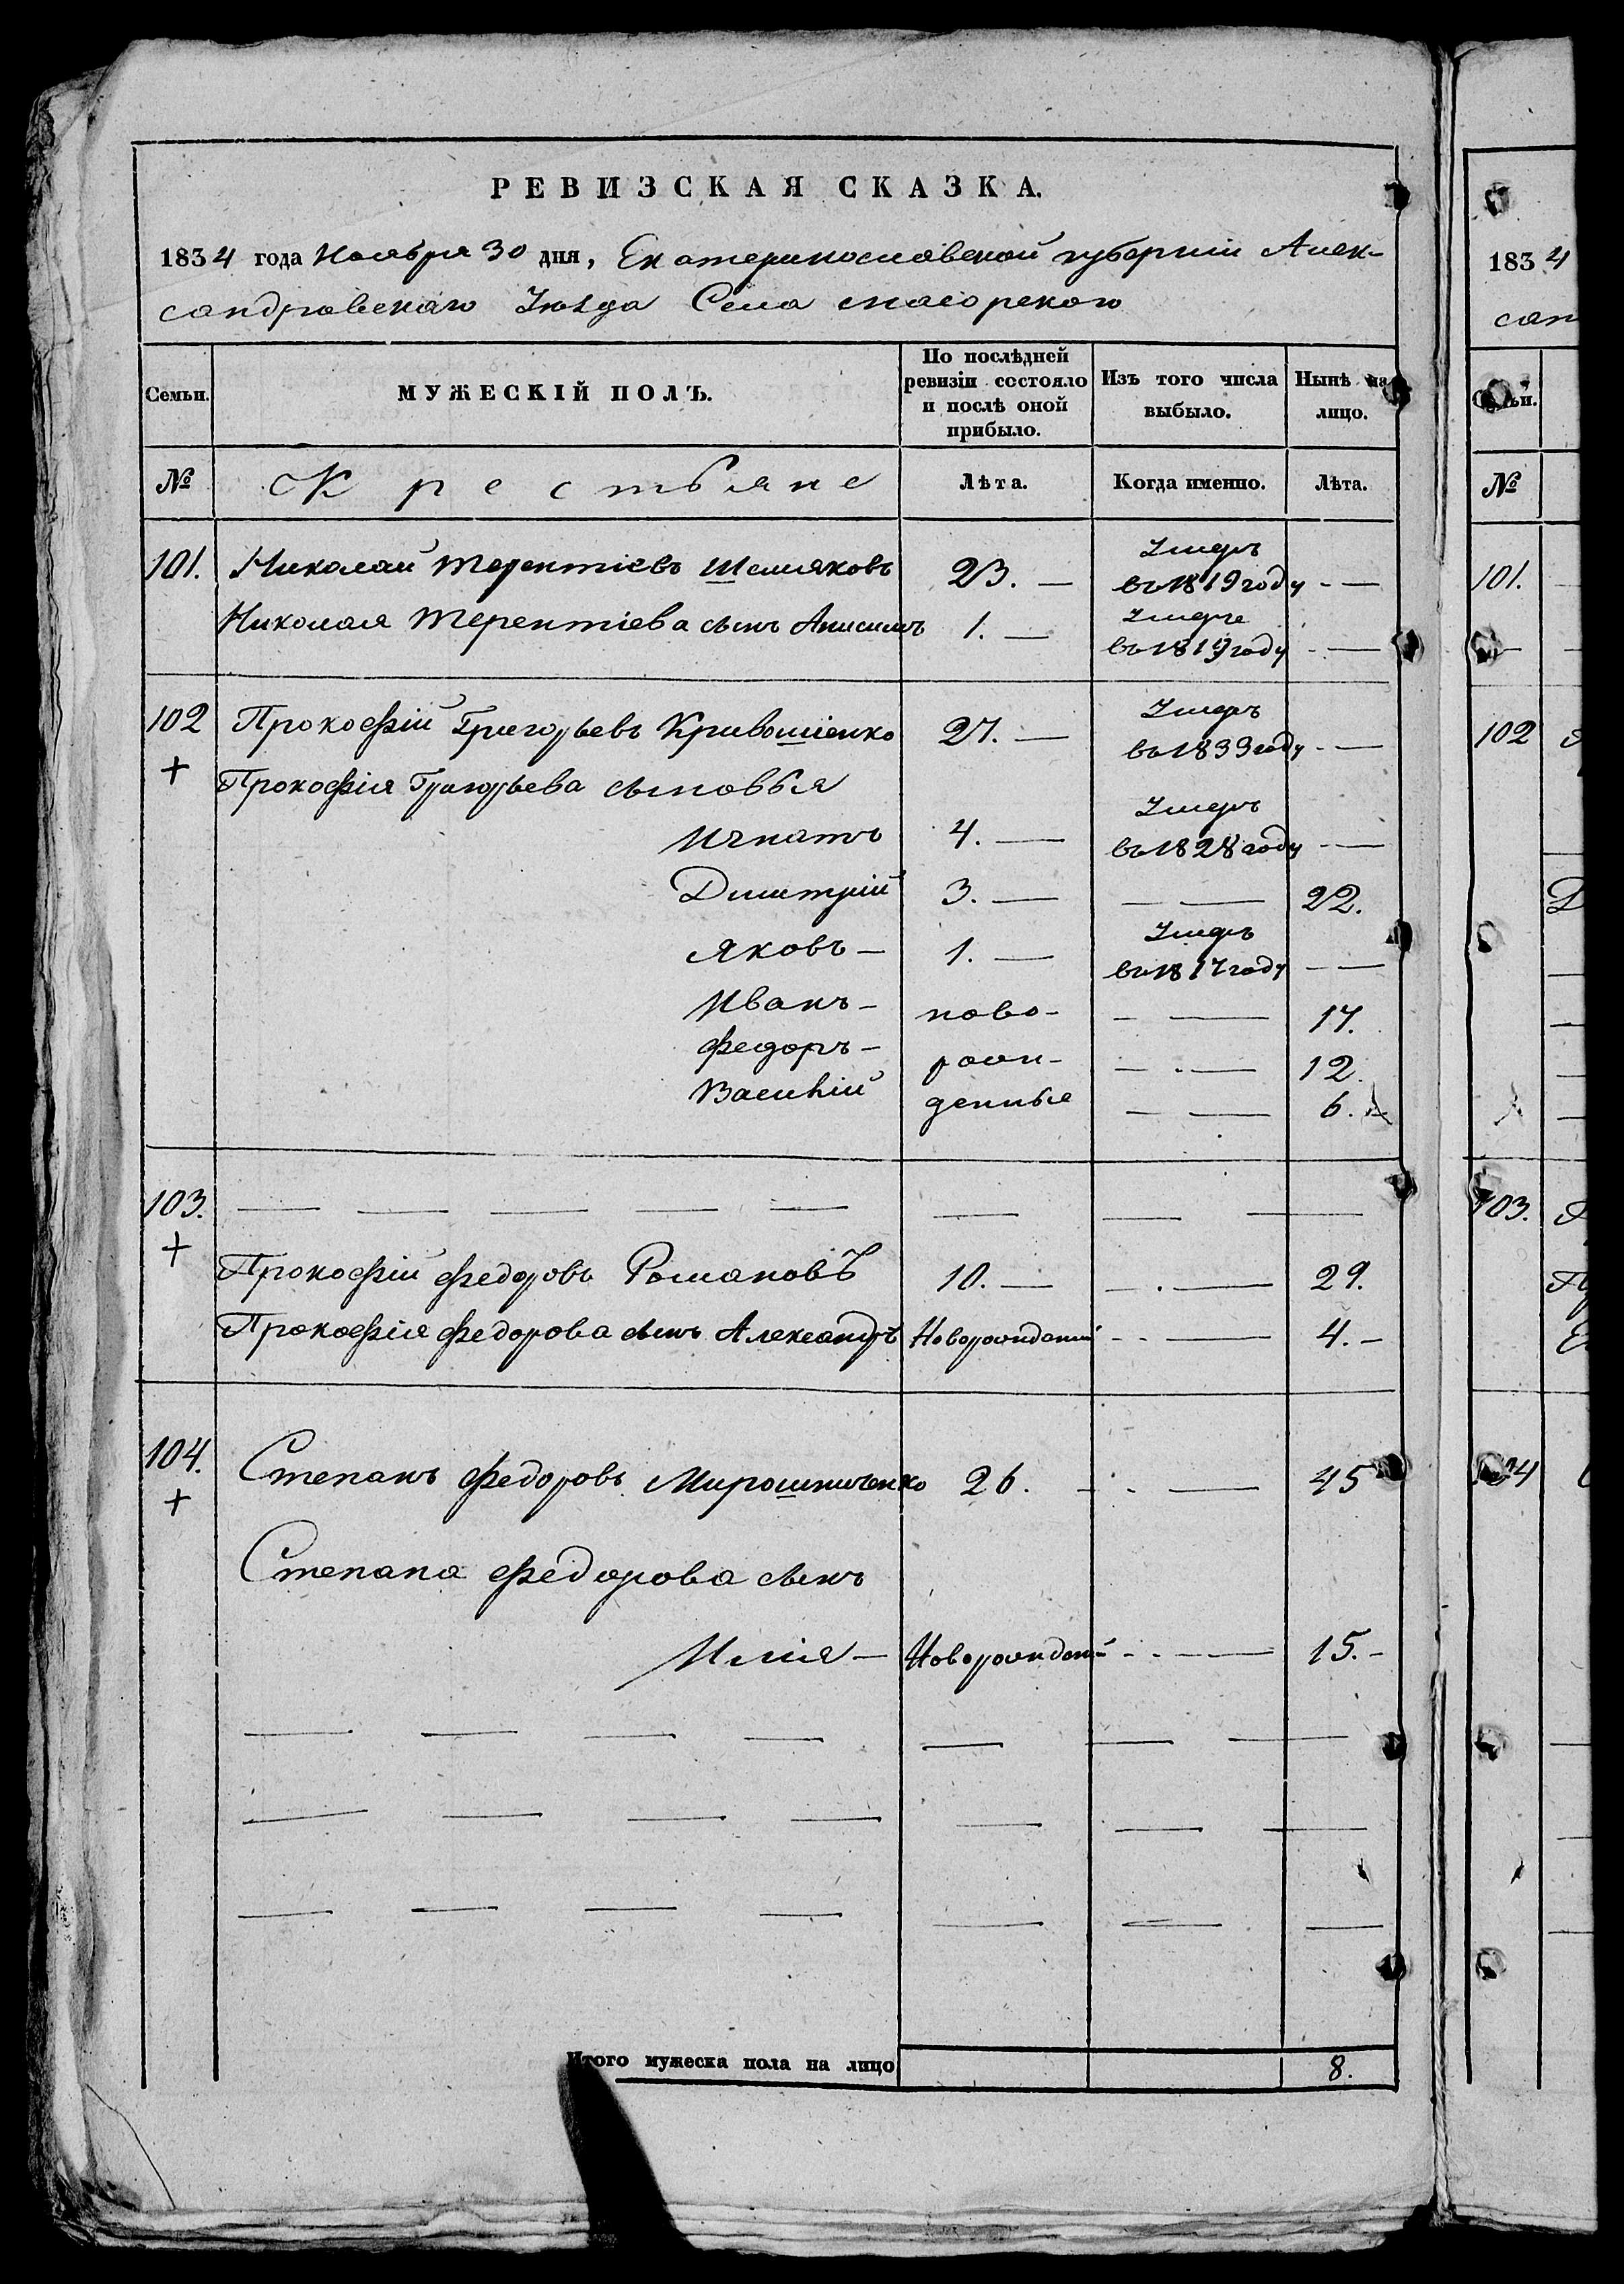 РЕВИЗСКАЯ СКАЗКА.
1834 года Ноября 30 дня, Екатеринославской губернiи Алек-
сандровскаго Уѣзда Села маiорского
Семьи.
МУЖЕСКIЙ ПОЛЪ.
По послѣдней ревизiи состояло и послѣ оной прибыло.
Изъ того числа выбыло.
Нынѣ на лицо.
№ Крестьяне Лѣта. Когда именно. Лѣта.
101. Николай Терентiевъ Шемяковъ 23. — Умеръ въ 1819 году - —
Николая Терентiева сынъ Анисимъ 1. — Умеръ въ 1819 году - —
102 Прокофiй Григорьевъ Кривошiенко 27. — Умеръ въ 1833 году - —
+ Прокофiя Григорьева сыновья
Игнатъ 4. — Умеръ въ 1828 году - —
Дмитрiй 3. — — — 22.
Яковъ — 1. — Умеръ въ 1817 году — —
Иванъ — ново- — — 17.
Федоръ — рож- — — 12.
Василiй денные — — 6.
103. — — — — — — — —
+
Прокофiй Федоровъ Романовъ 10. — — — 29.
Прокофiя Федорова сынъ Александръ Новорожденный - - — 4. -
104. Степанъ Федоровъ Мирошниченко 26. - - — 45
+
Степана Федорова сынъ
Илiя — Новорожденный - - — 15. -
Итого мужеска пола на лицо 8.
1834
сан
№
101.
102
103.